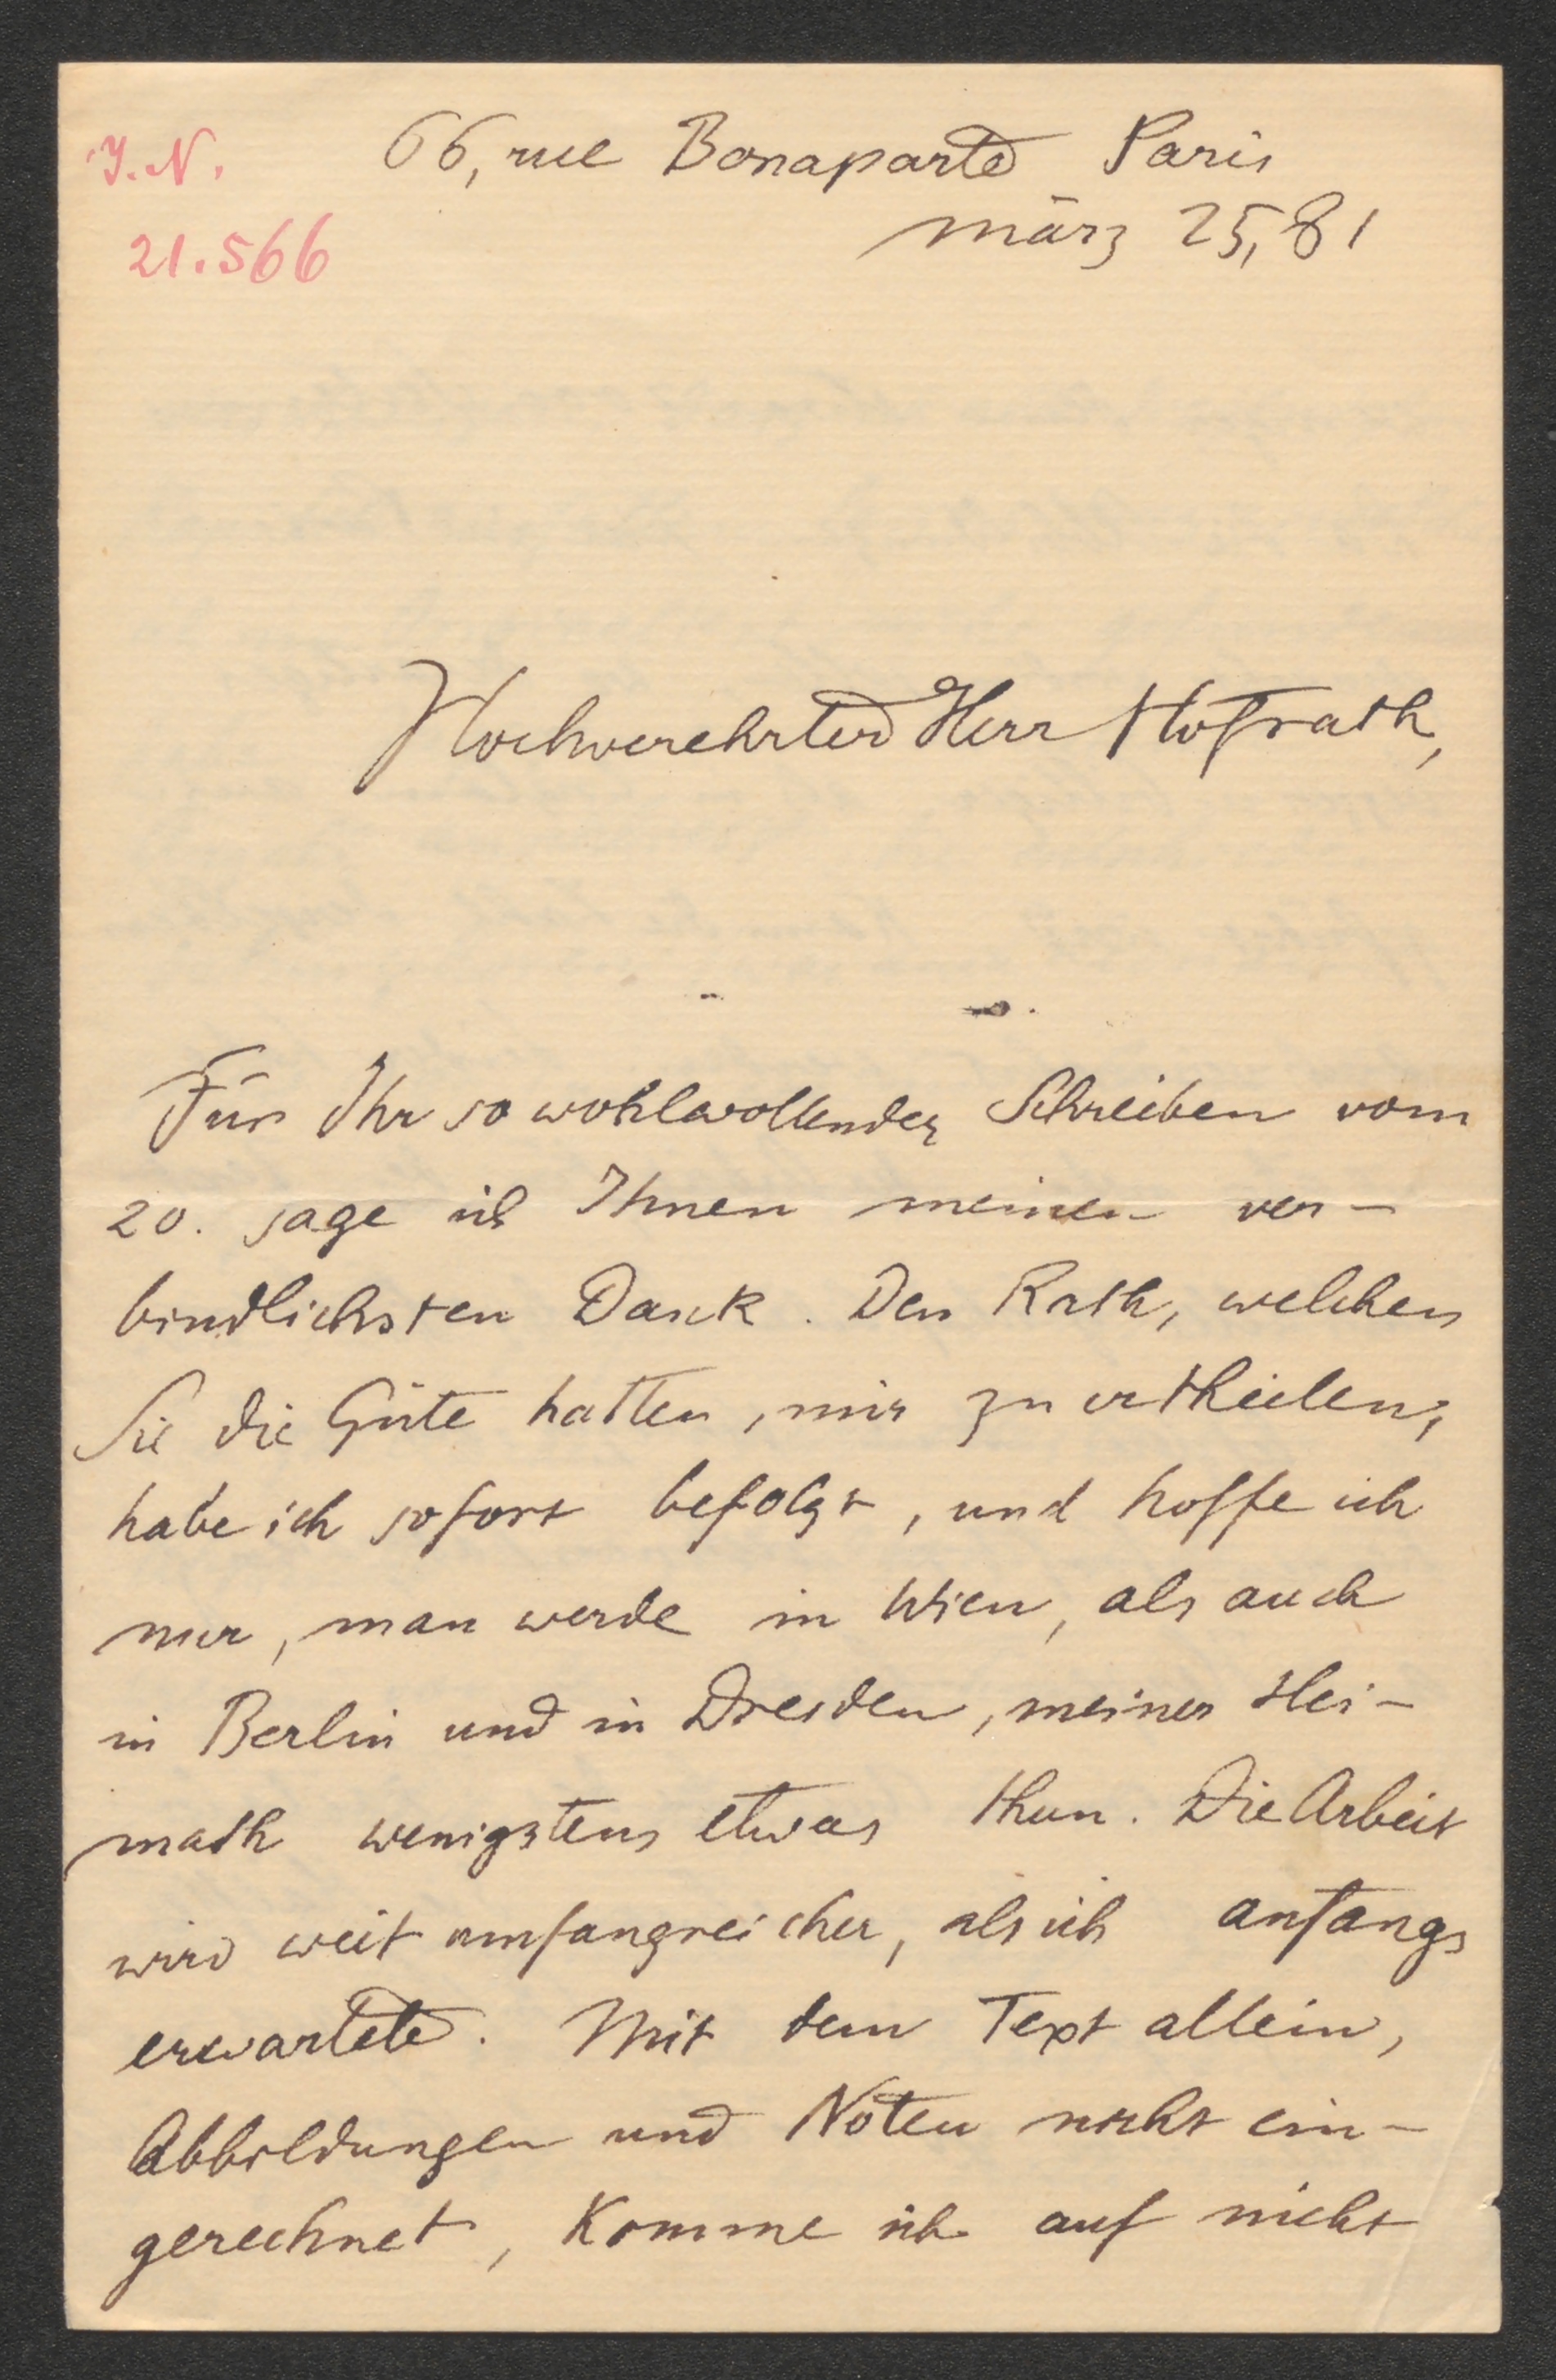 J. N.
21.566
66, rue Bonaparte Paris
März 25, 81
Hochverehrter Herr Hofrath,
Für Ihr so wohlwollendes Schreiben vom
20. sage ich Ihnen meinen ver-
bindlichsten Dank. Den Rath, welchen
Sie die Güte hatten, mir zu ertheilen,
habe ich sofort befolgt, und hoffe ich
nur, man werde in Wien, als auch
in Berlin und in Dresden, meiner Hei-
math wenigstens etwas thun. Die Arbeit
wird weit umfangreicher, als ich anfangs
erwartete. Mit dem Text allein,
Abbildungen und Noten nicht ein-
gerechnet, komme ich auf nicht